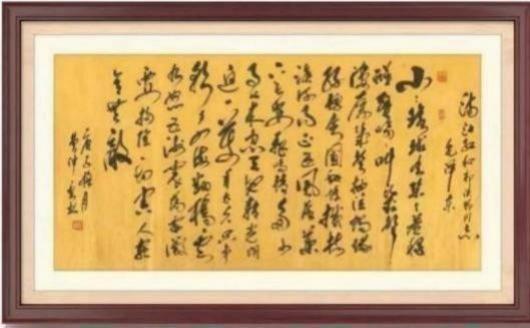 满江红和郭沫若同志
毛泽东
小小寰球有几个苍蝇
碰壁嗡嗡叫几声
凄厉几声抽泣蚂蚁缘
槐夸大国蚍蜉撼树
谈何易正西风落叶
下长安飞鸣镝多少
事从来急天地转光阴
迫一万年太久只争
朝夕四海翻腾云
水怒五洲震荡风雷激
要扫除一切害人虫
全无敌
庚子